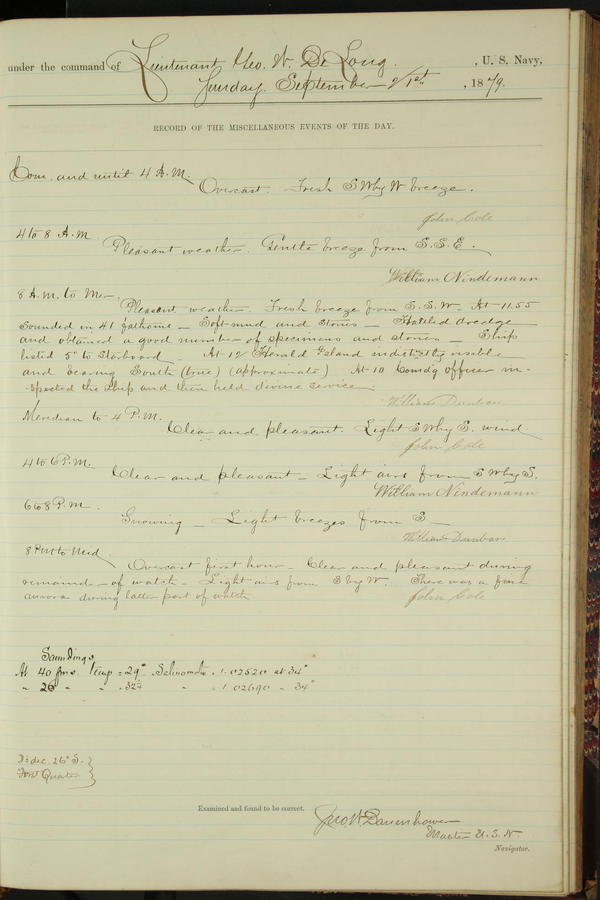 under the command of Lieutenant Geo. W. De Long. , U. S. Navy,
Sunday. September 21st , 1879.
RECORD OF THE MISCELLANEOUS EVENTS OF THE DAY.
Com. and until 4 A.M.
Overcast. Fresh S W by W breeze.
John Cole
4 to 8 A.M.
Pleasant weather. Gentle breeze from S.S.E.
William Nindemann
8 A.M. to Mer.
Pleasant weather. Fresh breeze from S.S.W. At 11.55
sounded in 41 fathoms – Soft mud and stones – Hauled dredge
and obtained a good number of specimens and stones – Ship
listed 5° to Starboard. At 12 Herald Island indistinctly visible
and bearing South (true) (approximate) At 10 Comdg officer in-
spected the ship and then held divine service.
William Dunbar
Meridian to 4 P.M.
Clear and pleasant. Light S W by S. wind.
John Cole
4 to 6 P.M.
Clear and pleasant – Light airs from S W by S.
William Nindemann
6 to 8 P.M.
Snowing – Light breezes from S –
William Dunbar
8 P.M. to Mid.
Overcast first hour – Clear and pleasant during
remainder of watch – Light airs from S by W. There was a fine
aurora during latter part of watch
John Cole
Soundings
At 40 fms. Temp = 29° Salinometer . 1.02520 at 34°
" 20 " " . 32° " . 1.02690 " 34°
)s dec. 26° S.
First Quarter
Examined and found to be correct.
Jno. W. Danenhower
Master U.S.N.
Navigator.